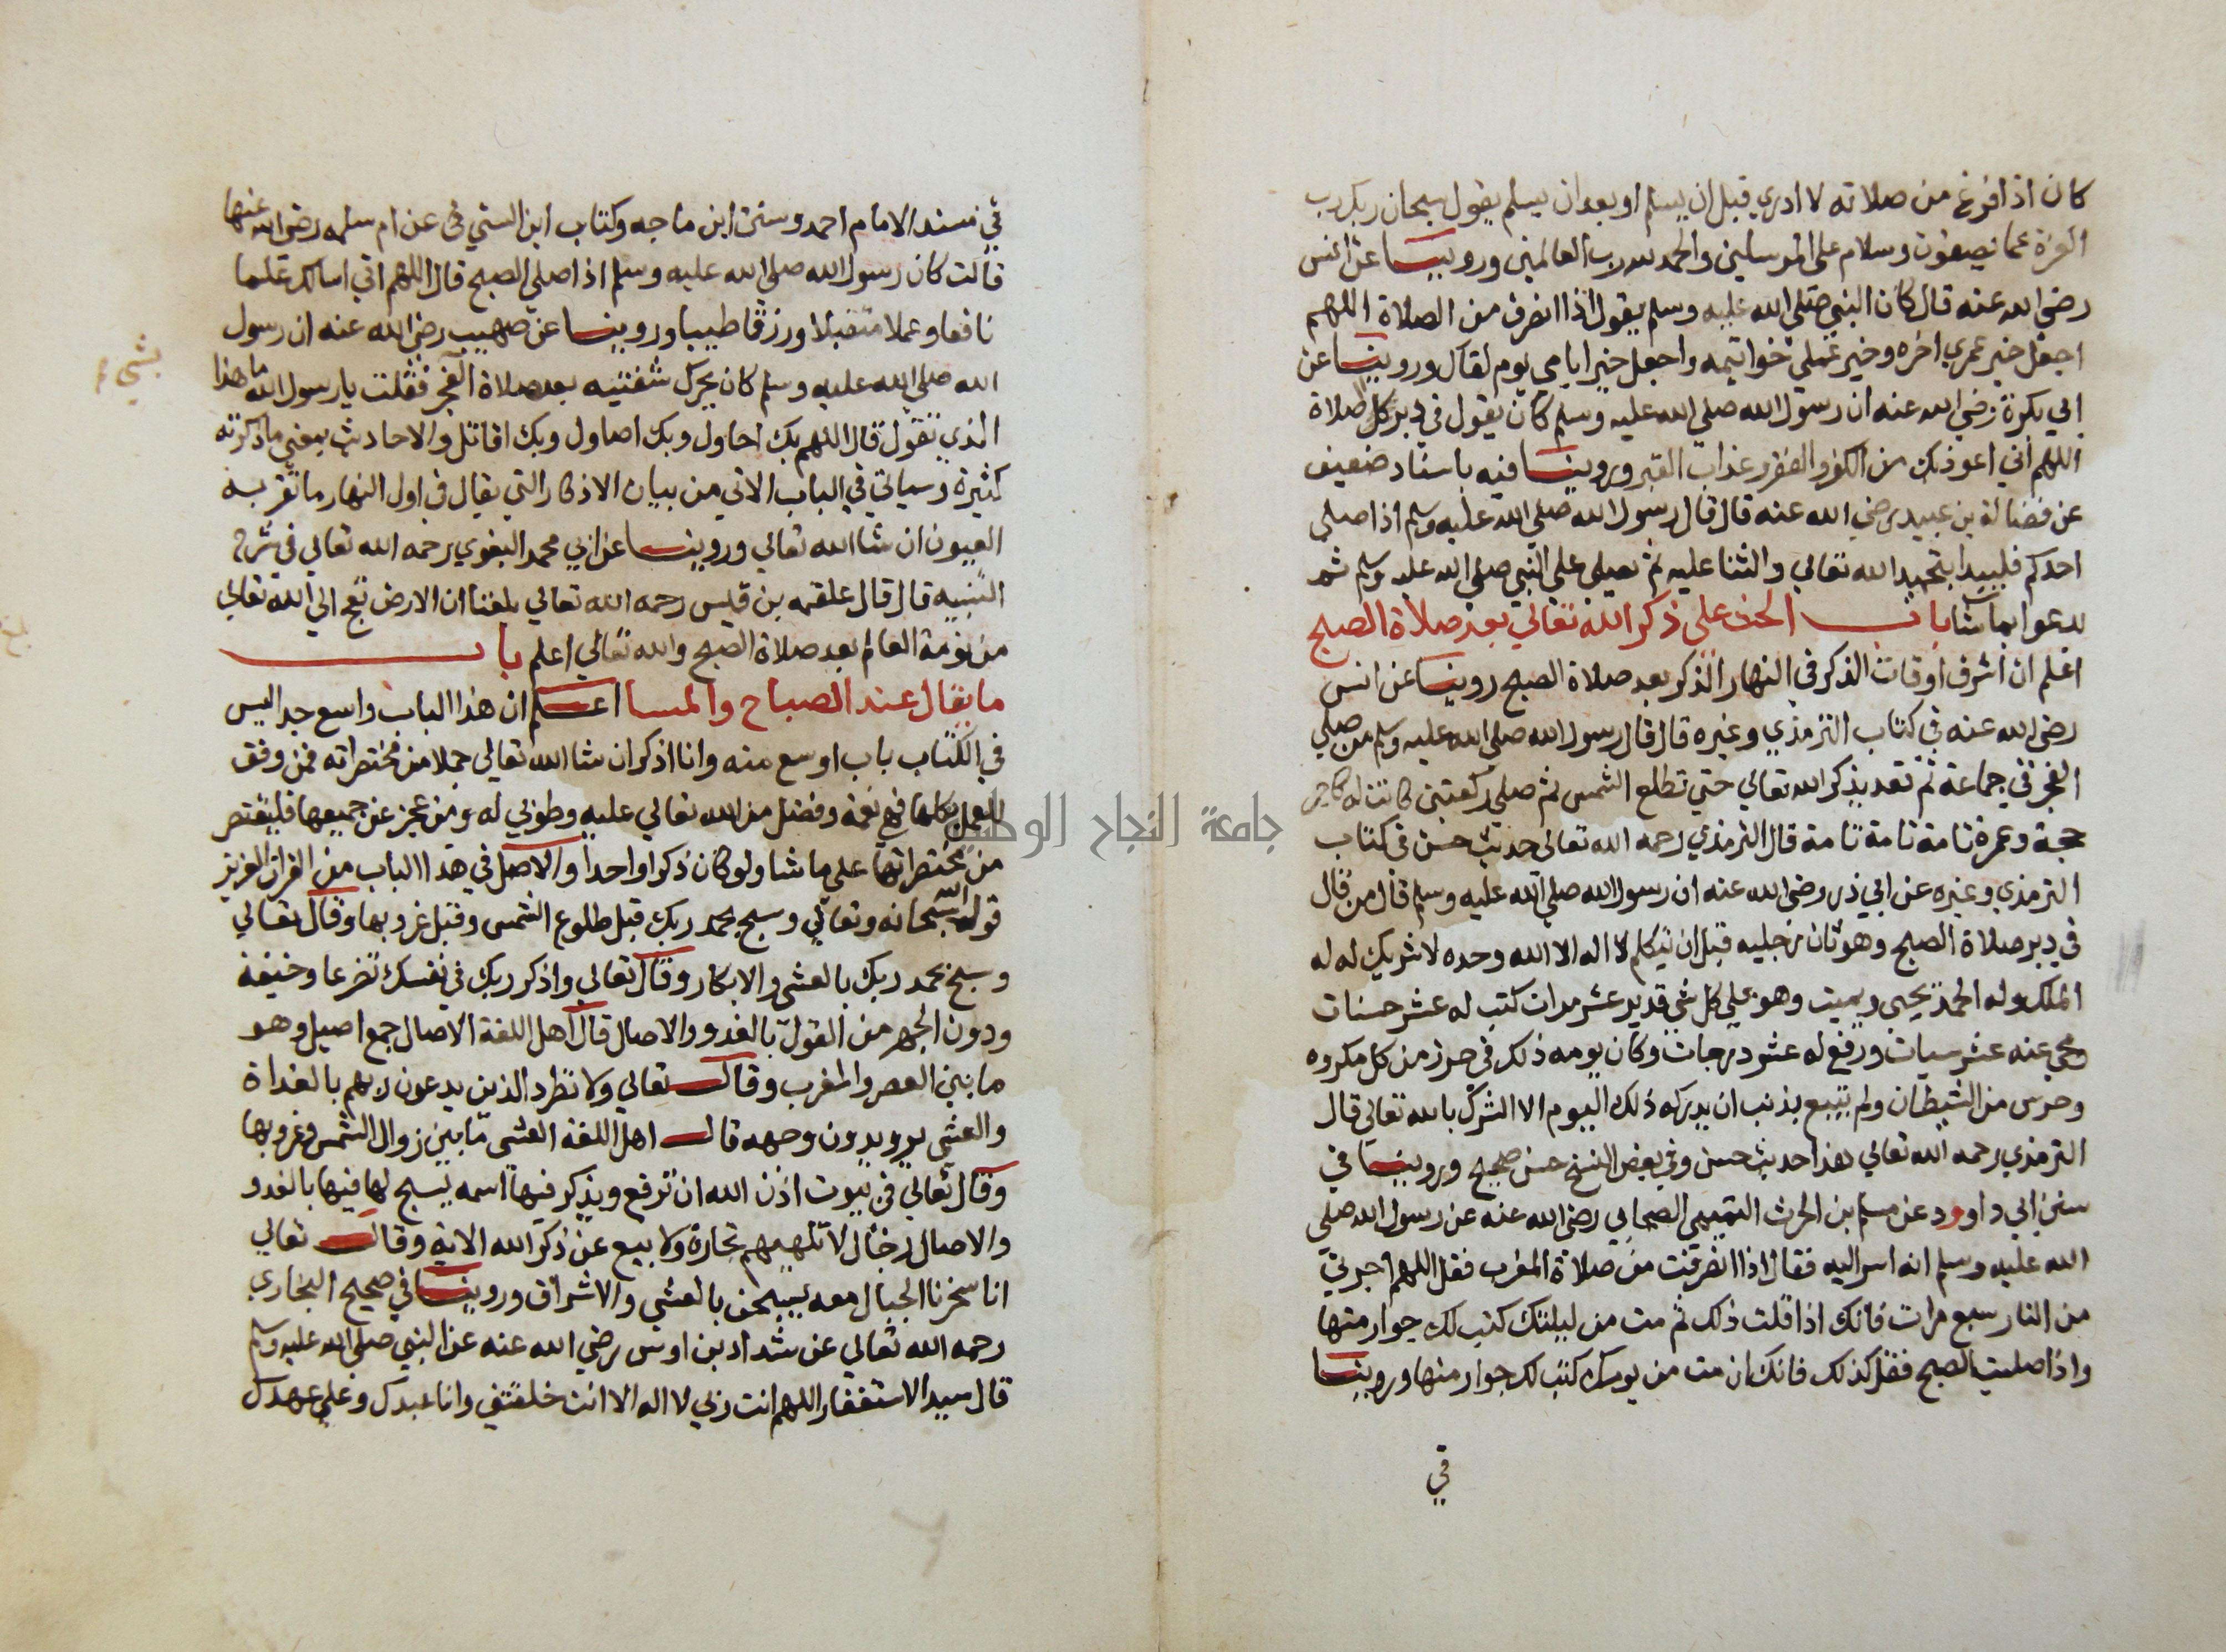 كان اذا فرغ من صلاته لا ادري قبل ان يسلم او بعد ان يسلم يقول سبحان ربك رب
العزة عما يصفون وسلام على المرسلين والحمد لله رب العالمين وروينا عن انس
رضي الله عنه قال كان النبي صلى الله عليه وسلم يقول اذا انصرف من الصلاة اللهم
اجعل خير عمري اخره وخير عملي خواتيمه واجعل خير ايامي يوم لقاك وروينا عن
ابي بكرة رضي الله عنه ان رسول الله صلى الله عليه وسلم كان يقول في دبر كل صلاة
اللهم اني اعوذ بك من الكفر والفقر وعذاب القبر وروينا فيه باسناد ضعيف
عن فضالة بن عبيد رضي الله عنه قال قال رسول الله صلى الله عليه وسلم اذا صلى
احدكم فليبدا بتحميد الله تعالي والثنا عليه ثم يصلي على النبي صلى الله عليه وسلم ثم
يدعوا بما شا باب الحث على ذكر الله تعالي بعد صلاة الصبح
اعلم ان اشرف اوقات الذكر في النهار الذكر بعد صلاة الصبح روينا عن انس
رضي الله عنه في كتاب الترمذي وغيره قال قال رسول الله صلى الله عليه وسلم من صلي
الفجر في جماعة ثم قعد يذكر الله تعالي حتي تطلع الشمس ثم صلى ركعتين كانت له كاجر
حجة وعمرة تامة تامة تامة قال الترمذي رحمه الله تعالى حديث حسن في كتاب
الترمذي وغيره عن ابي ذر رضي الله عنه ان رسول الله صلى الله عليه وسلم قال من قال
في دبر صلاة الصبح وهو ثان رجليه قبل ان يتكلم لا اله الا الله وحده لا شريك له له
الملك وله الحمد يحيى ويميت وهو علي كل شي قدير عشر مرات كتب له عشر حسنات
ومحي عنه عشر سيات ورفع له عشر درجات وكان يومه ذلك في حرز من كل مكروه
وحرس من الشيطان ولم يتبع بذنب ان يدركه ذلك اليوم الا الشرك بالله تعالي قال
الترمذي رحمه الله تعالي هذا حديث حسن وفي بعض النسخ حسن صحيح وروينا في
سنن ابي داوود عن مسلم بن الحرث التميمي الصحابي رضي الله عنه عن رسول الله صلى
الله عليه وسلم انه اسر اليه فقال اذا انصرفت من صلاة المغرب فقل اللهم اجرني
من النار سبع مرات فانك اذا قلت ذلك ثم مت من ليلتك كتب لك جوار منها
واذا صليت الصبح فقل كذلك فانك ان مت من يومك كتب لك جوار منها وروينا
في
في مسند الامام احمد وسنن ابن ماجه وكتاب ابن السني في عن ام سلمه رضي الله عنها
قالت كان رسول الله صلى الله عليه وسلم اذا صلى الصبح قال اللهم اني اسالك علما
نافعا وعملا متقبلا ورزقا طيبا وروينا عن صهيب رضي الله عنه ان رسول
الله صلى الله عليه وسلم كان يحرك شفتيه بعد صلاة الفجر فقلت يا رسول الله ما هذا
بشي
الذي تقول قال اللهم بك احاول وبك اصاول وبك اقاتل والاحاديث بمعني ما ذكرته
كثيرة وسياتي في الباب الاتي من بيان الاذكار التي يقال في اول النهار ما تقر به
العيون ان شا الله تعالي وروينا عن ابي محمد البغوي رحمه الله تعالي في شرح
التنبيه قال قال علقمه بن قيس رحمه الله تعالي بلغنا ان الارض تعج الي الله تعالى
من نومة العالم بعد صلاة الصبح والله تعالي اعلم باب
ما يقال عند الصباح والمسا اعلم ان هذا الباب واسع جدا ليس
في الكتاب باب اوسع منه وانا اذكر ان شا الله تعالي جملا من مختصراته فمن وفق
للعمل بكلها فهي نعمة وفضل من الله تعالي عليه وطوبي له ومن عجز عن جميعها فليقتصر
من مختصراتها علي ما شا ولو كان ذكرا واحدا والاصل في هذا الباب من القران العزيز
قول الله سبحانه وتعالي وسبح بحمد ربك قبل طلوع الشمس وقبل غروبها وقال تعالي
وسبح بحمد ربك بالعشي والابكار وقال تعالي واذكر ربك في نفسك تضرعا وخيفة
ودون الجهر من القول بالغدو والاصال قال اهل اللغة الاصال جمع اصيل وهو
ما بين العصر والمغرب وقال تعالي ولا تطرد الذين يدعون ربهم بالغداة
والعشي يريدون وجهه قال اهل اللغة العشي ما بين زوال الشمس وغروبها
وقال تعالي في بيوت اذن الله ان ترفع ويذكر فيها اسمه يسبح لها فيها بالغدو
والاصال رجال لا تلهيهم تجارة ولا بيع عن ذكر الله الاية وقال تعالي
انا سخرنا الجبال معه يسبحن بالعشي والاشراق وروينا في صحيح البخاري
رحمه الله تعالي عن شداد بن اوس رضي الله عنه عن النبي صلى الله عليه وسلم
قال سيد الاستغفار اللهم انت ربي لا اله الا انت خلقتني وانا عبدك وعلي عهدك
جامعة النجاح الوطنية